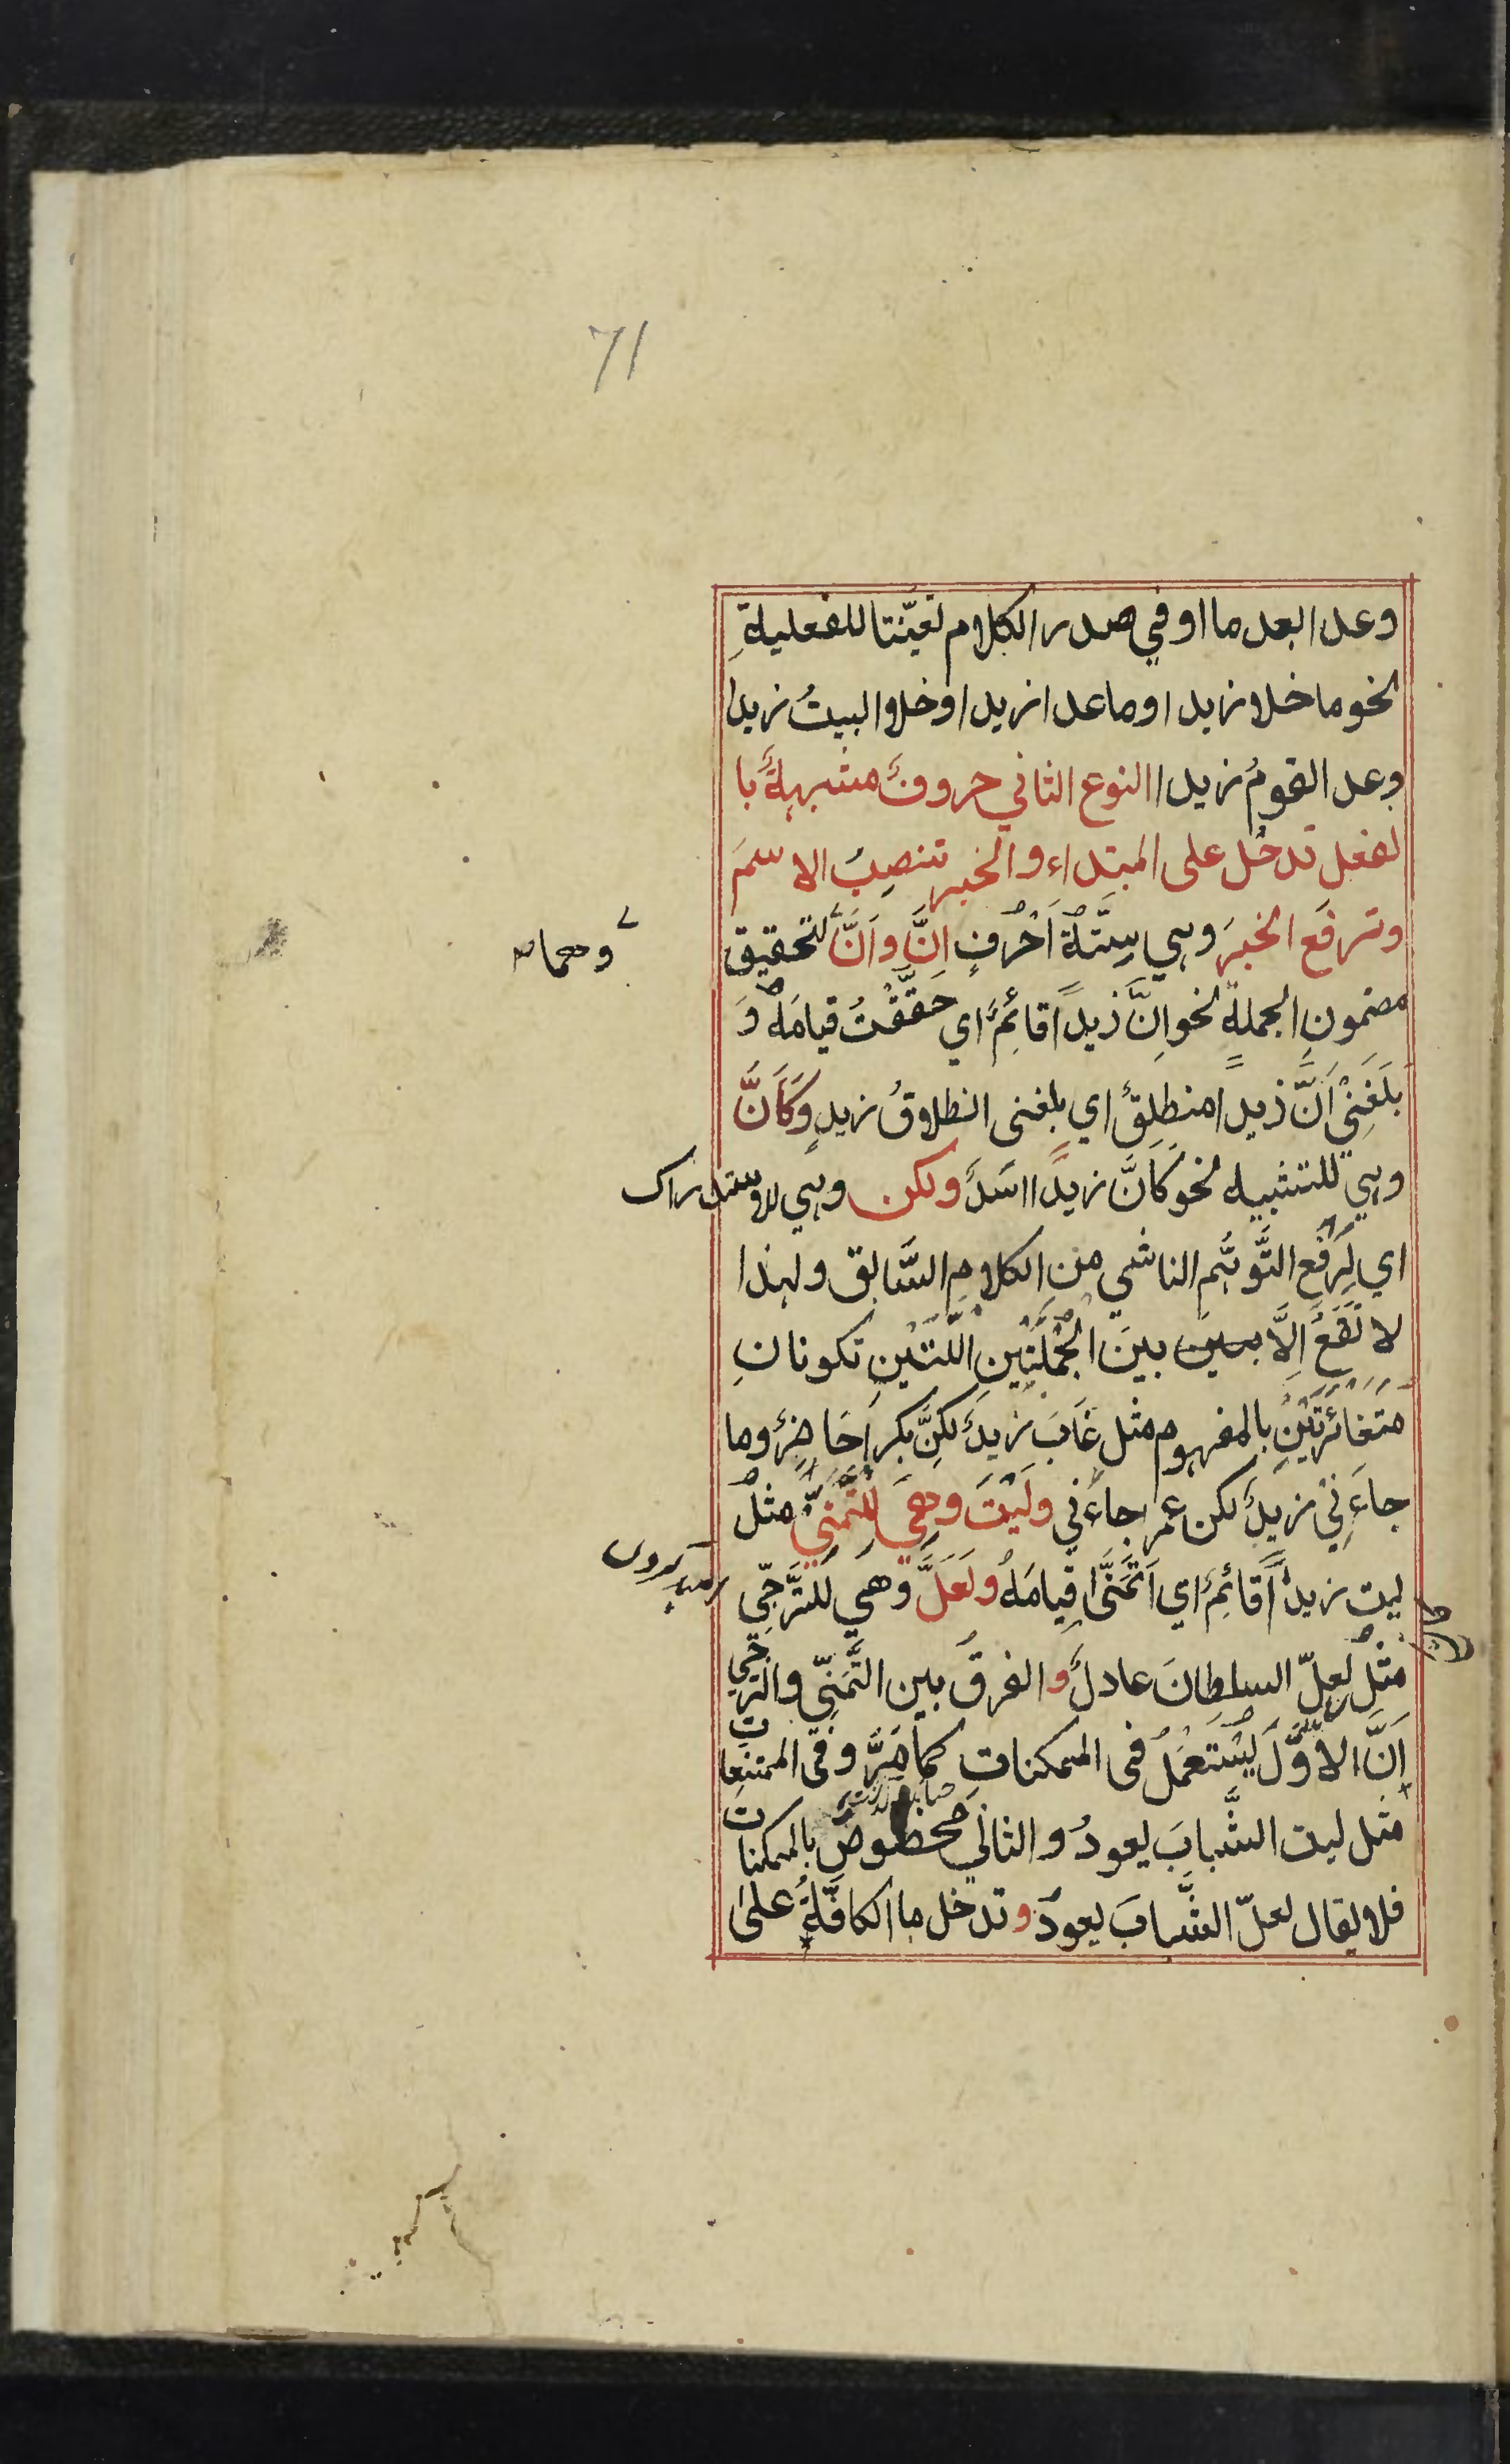 71
وعدا بعد ما او في صدر الكلام تعيّنتا للفعليةِ
نحو ما خلا زيدا وما عدا زيدا وخلا البيتُ زيدا
وعدا القومُ زيدا النوع الثاني حروفٌ مشبهةٌ با
لفعل تدخل على المبتداء والخبر تنصِبُ الاسمَ
وترفَع الخبرَ وهي سِتَّةُ اَحْرُفٍ اِنَّ واَنَّ لتحقيق
وهما
مضمونِ الجملة نحو اِنَّ زيداً قائمٌ اي حَقَّقْتُ قيامَهُ وَ
بَلَغَنِيْ اَنَّ زيدا منطلِقٌ اي بلغنى انطلاقُ زيدٍ وَكَاَنَّ
وهي للتشبيه نحو كَاَنَّ زيداً اسَدٌ ولكن وهي للاستدراك
اي لِرَفْعِ التَّوهُّم الناشي من الكلام السَّابق ولهذا
لا تَقَعُ اِلَّا بين بينَ الجُمْلَتَيْنِ اللَّتَيْنِ تكونانِ
مَتَغائرَتَيْنِ بالمفهوم مثل غَابَ زيدٌ لكِنَّ بكراً حَاضِرٌ وما
جاءَنِيْ زيدٌ لكن عمرا جاءَني ولَيْتَ وهِيَ لِلتَّمَنِّيْ مثلُ
ليت زيداً قائمٌ اي اَتَمَنَّى قيامَهُ ولَعَلَّ وهي للتَّرَجِّي
مثلُ لعلّ السلطانَ عادلٌ والفرقُ بين التَّمَنِّي والتَّرَجّي
اَنَّ الاوَّلَ يُسْتَعْمَلُ في الممكناتِ كما مَرَّ وفي الممتنِعات
مثل ليت الشَّبابَ يعودُ والثاني مخصوصٌ بالممكنات
فلا يقال لعلّ الشَّبابَ يعودُ وتدخل ما الكافَّةُ على